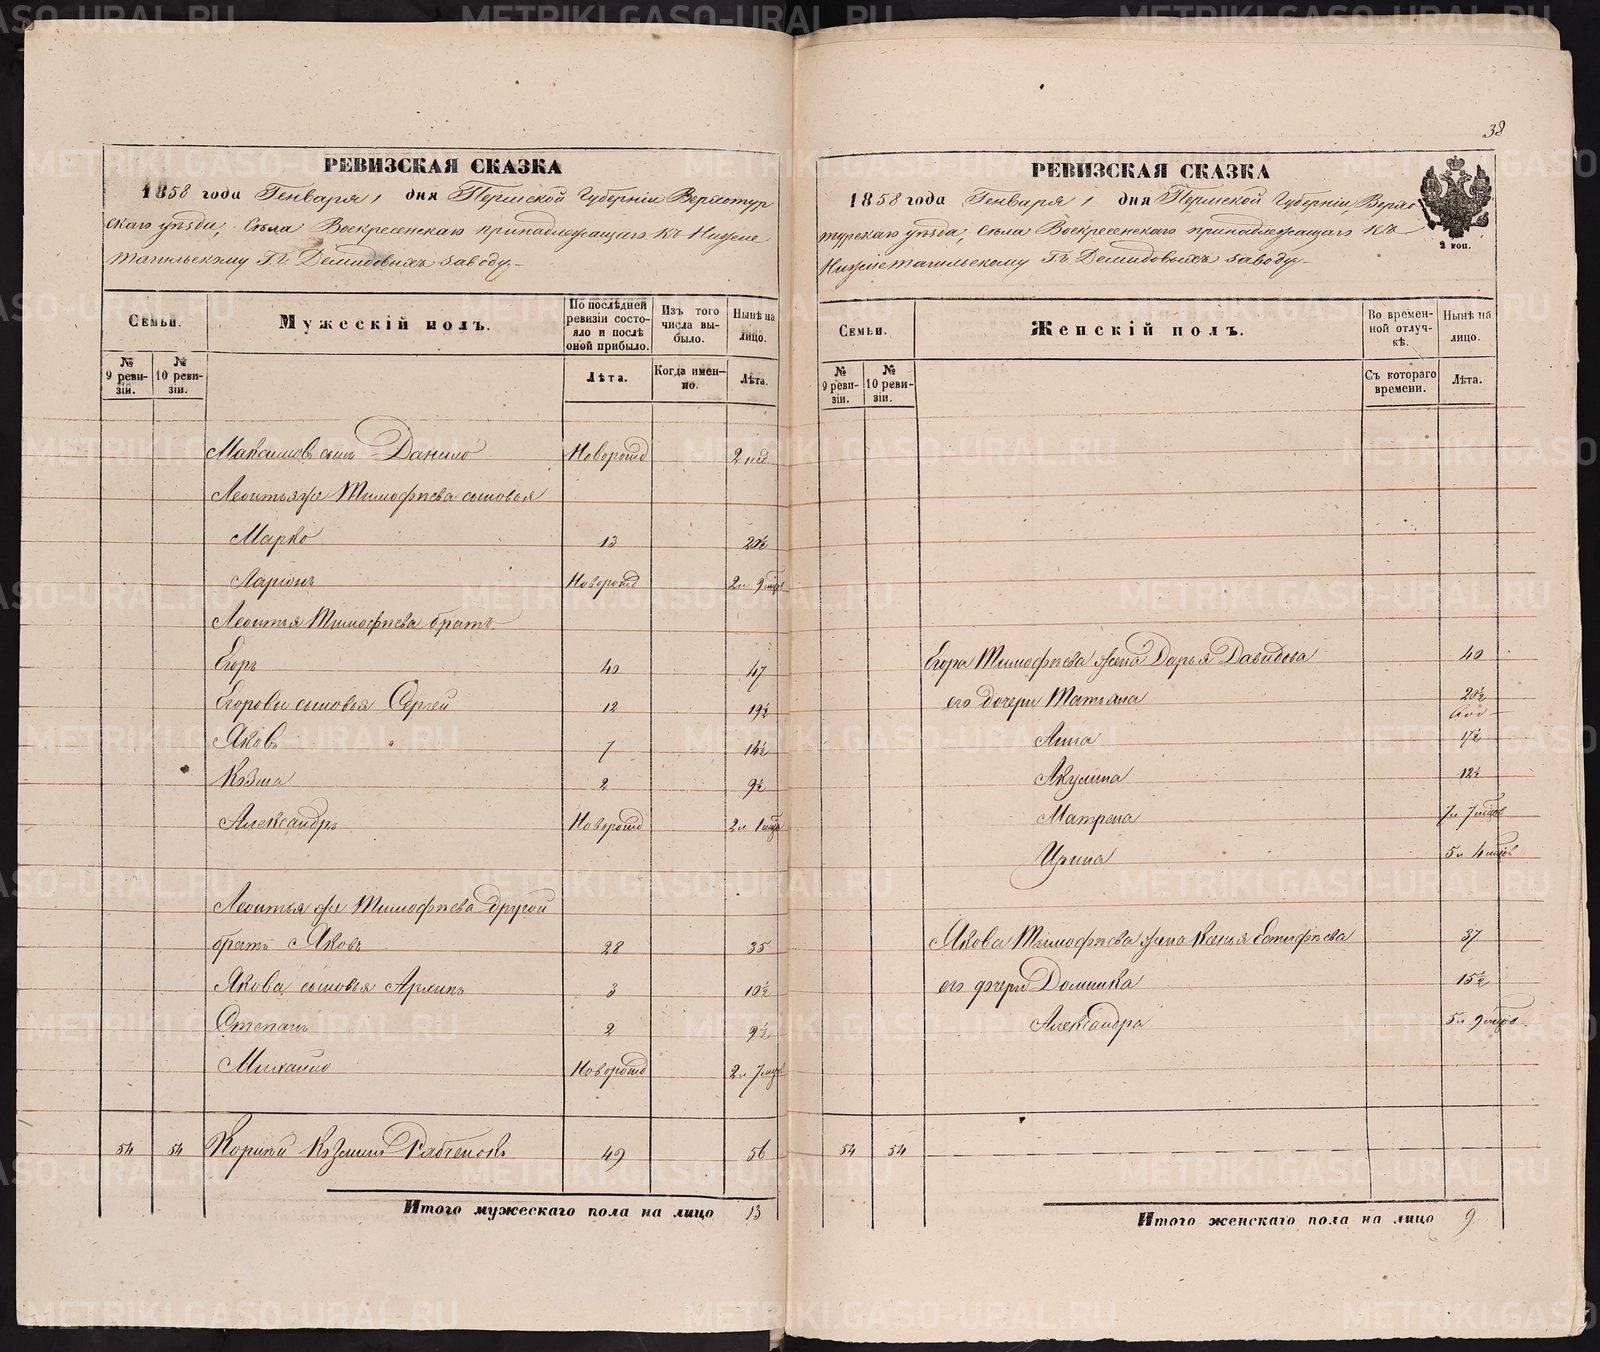 38
РЕВИЗСКАЯ СКАЗКА
1858 года Генваря 1 дня Пермской Губернiи Верхотур
скаго уѣзда, Села Воскресенскаго принадлежащаго къ Нижне
тагильскому Гг. Демидовыхъ заводу.
Семьи.
Мужескiй полъ.
По послѣдней ревизiи состояло и послѣ оной прибыло.
Изъ того числа выбыло.
Нынѣ на лицо.
№ 9 ревизiи.
№ 10 ревизiи.
Лѣта.
Когда именно.
Лѣта.
Максимовъ сынъ Данило Новорожд 2 нед
Леонтья же Тимофѣева сыновья
Марко 13 20½
Ларiонъ Новорожд 2 л 9 мцов
Леонтья Тимофѣева братъ
Егоръ 40 47
Егоровы сыновья Сергей 12 19½
Яковъ 7 14½
Кузма 2 9½
Александръ Новорожд 2 л 1 мцъ
Леонтья же Тимофѣева другой
братъ Яковъ 28 35
Якова сыновья Архипъ 3 10½
Степанъ 2 9½
Михайло Новорожд 2 л 7 мцов
54 54 Корнѣй Кузминъ 49 56
Итого мужескаго пола на лицо 13
РЕВИЗСКАЯ СКАЗКА
1858 года Генваря 1 дня Пермской Губернiи, Верхо
турскаго уѣзда, Села Воскресенскаго принадлежащаго къ
Нижнетагильскому Гг. Демидовыхъ заводу.
2 коп.
Семьи.
Женскiй полъ.
Во временной отлучкѣ.
Нынѣ на лицо.
№ 9 ревизiи.
№ 10 ревизiи.
Съ котораго времени.
Лѣта.
Егора Тимофѣева жена Дарья Давыдова 40
его дочери Татьяна 20½
Анна 17½
Акулина 12½
Матрена 7 л 7 мцов
Ирина 5 л 4 мцов
Якова Тимофѣева жена Ксенья Естифѣева 37
его дочери Домника 15½
Александра 5 л 9 мцов
54 54
Итого женскаго пола на лицо 9
METRIKI.GASO-URAL.RU